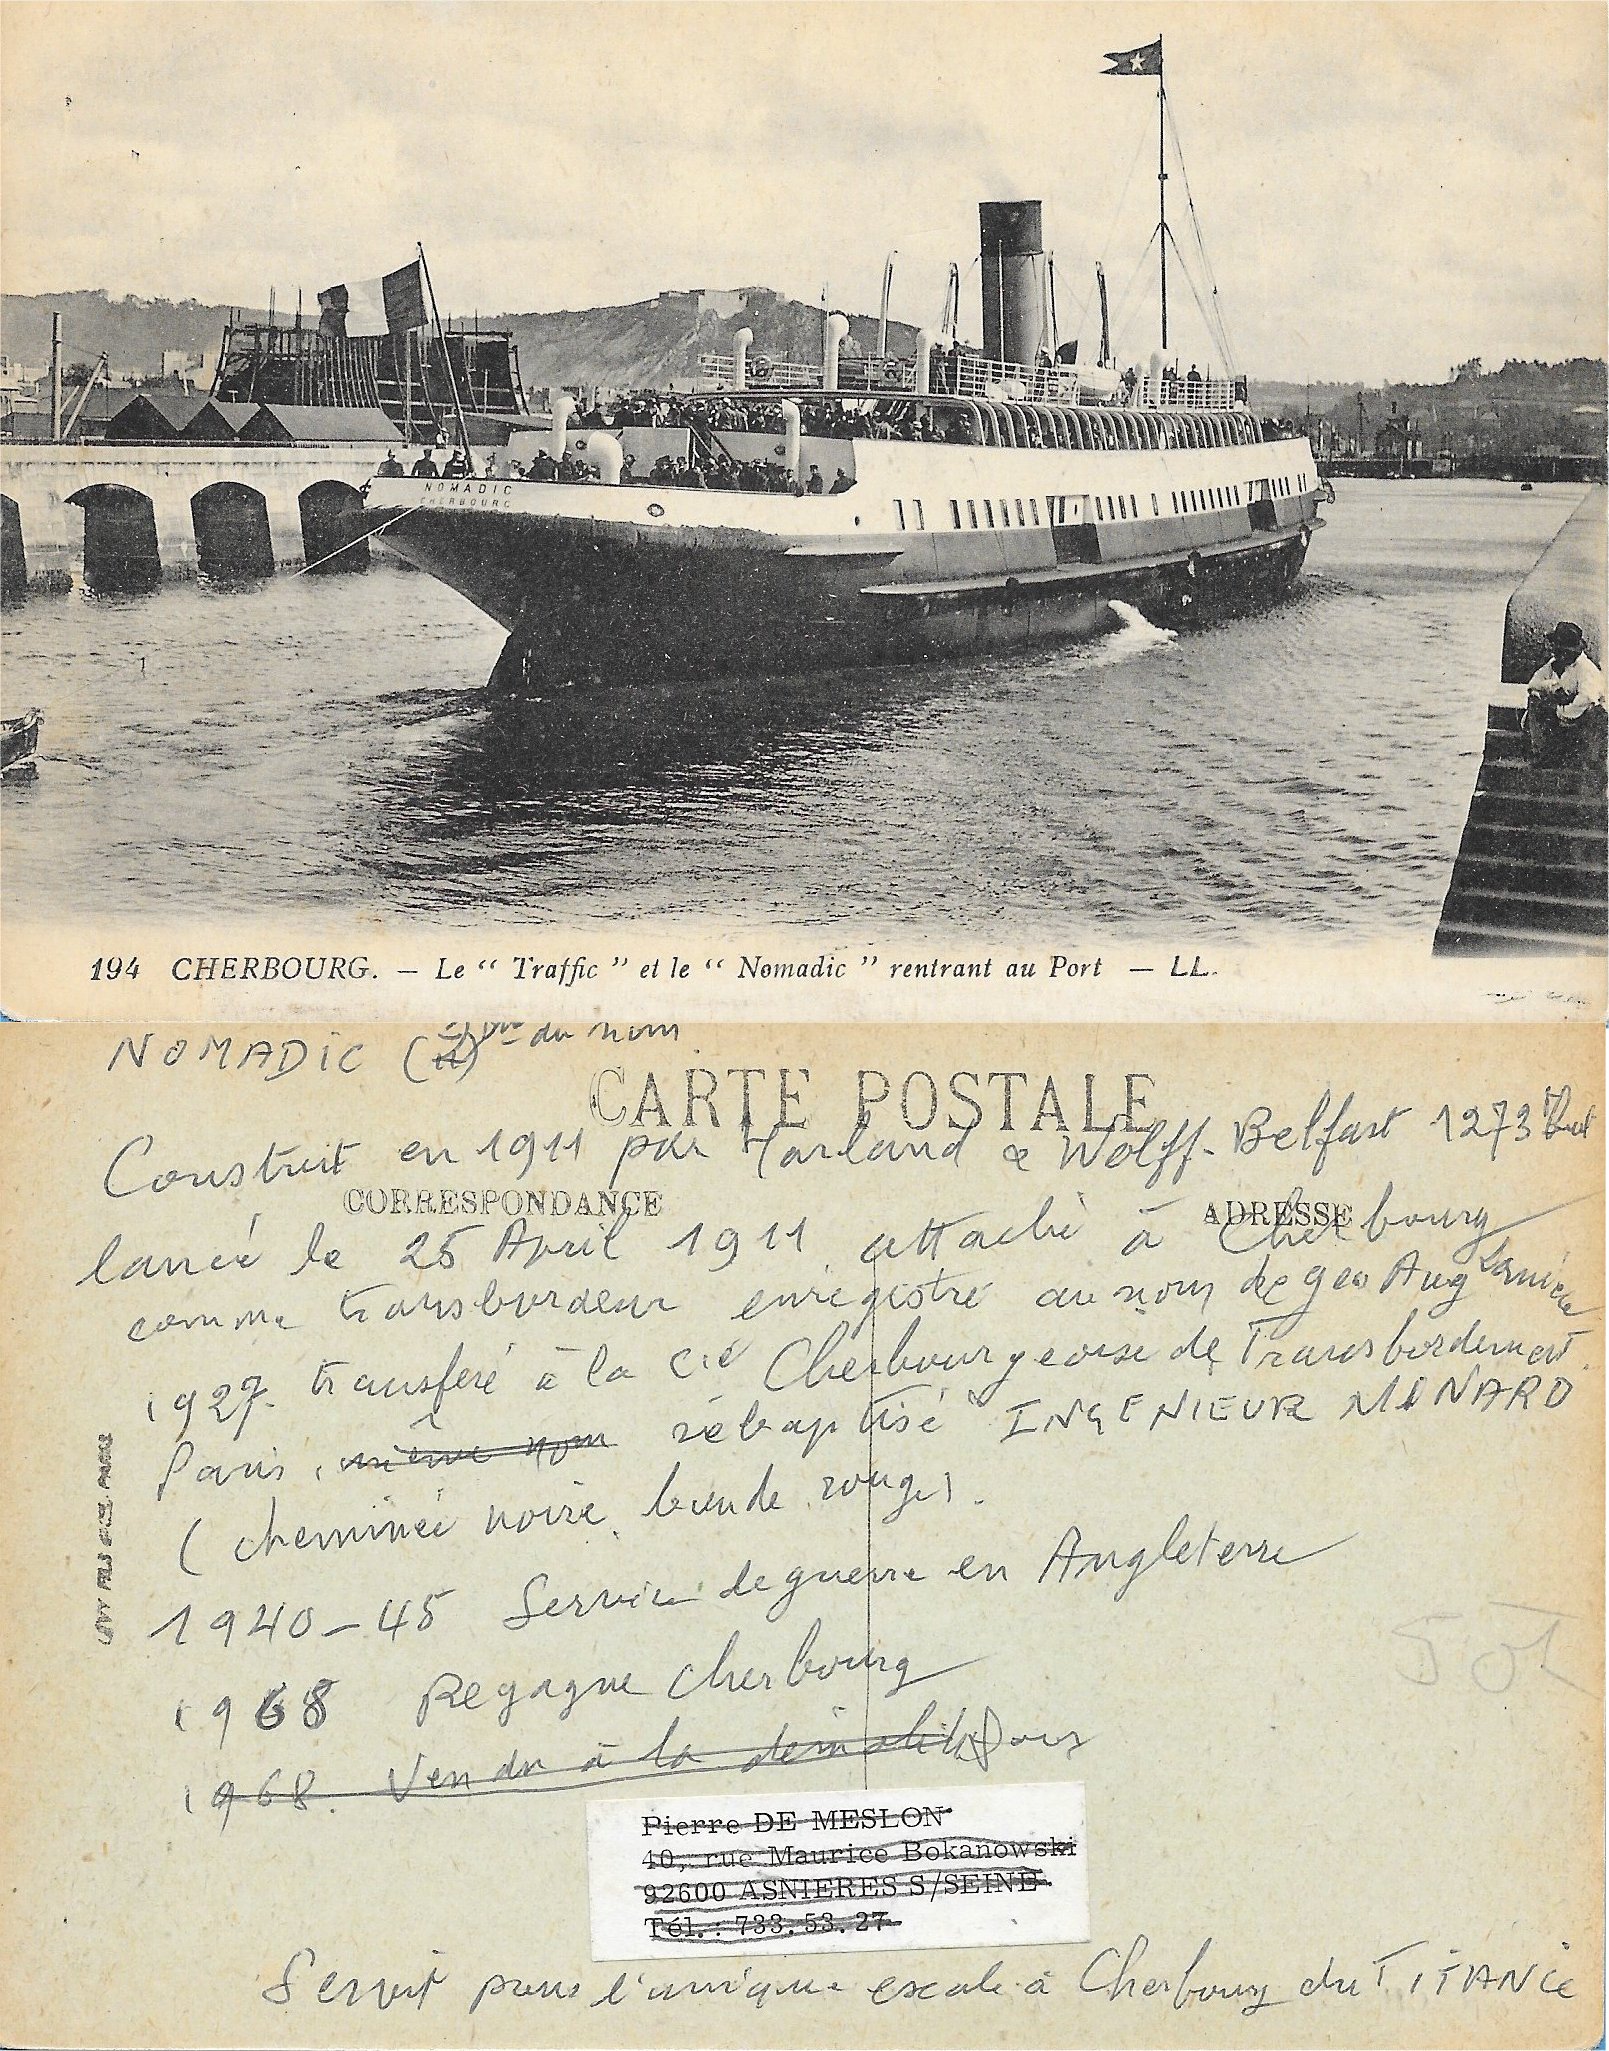 NOMADIC
CHERBOURG
194 CHERBOURG. — Le “ Traffic ” et le “ Nomadic ” rentrant au Port — LL.
NOMADIC ( du nom
CARTE POSTALE
Construit en 1911 par Harland & Wolff - Belfast 1273
CORRESPONDANCE
ADRESSE
lancé le 25 Avril 1911 attaché à Cherbourg
comme transbordeur enregistré au nom de geo Aug Lanièce
1927. transféré à la Cie Cherbourgeoise de Transbordement.
Paris, même nom rebaptisé INGENIEUR MINARD
(cheminée noire, bande rouge).
1940-45 Service de guerre en Angleterre
1968 Regagne Cherbourg
1968. Vendu à la
LEVY FILS & Cie, PARIS
Pierre DE MESLON
40, rue Maurice Bokanowski
92600 ASNIERES S/SEINE
Tél. : 733.53.27
Servit pour l'unique escale à Cherbourg du TITANIC